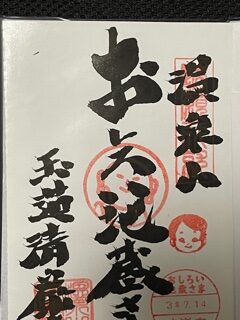 温泉山
おしろい地蔵さ
玉造清巖
おしろい
地蔵さま
3.7.14